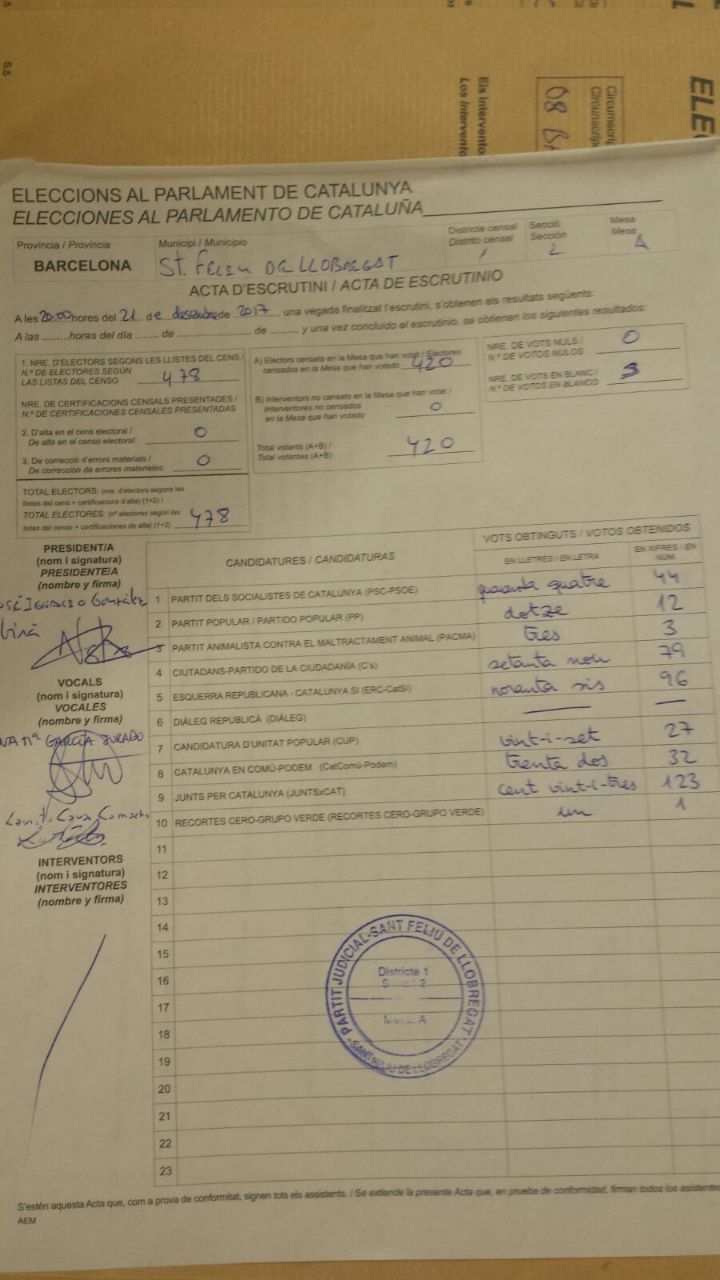 ELECCIONS AL PARLAMENT DE CATALUNYA
ELECCIONES AL PARLAMENTO DE CATALUÑA
Província / Provincia
BARCELONA
Municipi / Municipio
ST. FELIU DE LLOBREGAT
Districte censal
Distrito censal
1
Secció
Sección
2
Mesa
Mesa
A
ACTA D'ESCRUTINI / ACTA DE ESCRUTINIO
A les 20:00 hores del 21 de desembre de 2017, una vegada finalitzat l'escrutini, s'obtenen els resultats següents:
A las ......... horas del día ...... de .................. de ........, y una vez concluido el escrutinio, se obtienen los siguientes resultados:
1. NRE. D'ELECTORS SEGONS LES LLISTES DEL CENS /
N.º DE ELECTORES SEGÚN
LAS LISTAS DEL CENSO 478
NRE. DE CERTIFICACIONS CENSALS PRESENTADES /
N.º DE CERTIFICACIONES CENSALES PRESENTADAS
2. D'alta en el cens electoral /
De alta en el censo electoral: 0
3. De correcció d'errors materials /
De corrección de errores materiales: 0
TOTAL ELECTORS: (nre. d'electors segons les
llistes del cens + certificacions d'alta) (1+2) /
TOTAL ELECTORES: (nº electores según las
listas del censo + certificaciones de alta) (1+2) 478
A) Electors censats en la Mesa que han votat / Electores
censados en la Mesa que han votado 420
B) Interventors no censats en la Mesa que han votat /
Interventores no censados
en la Mesa que han votado 0
Total votants (A+B) /
Total votantes (A+B) 420
NRE. DE VOTS NULS /
N.º DE VOTOS NULOS 0
NRE. DE VOTS EN BLANC /
N.º DE VOTOS EN BLANCO 3
PRESIDENT/A
(nom i signatura)
PRESIDENTE/A
(nombre y firma)
JOSÉ IGNACIO González
VOCALS
(nom i signatura)
VOCALES
(nombre y firma)
GARCÍA JURADO
INTERVENTORS
(nom i signatura)
INTERVENTORES
(nombre y firma)
CANDIDATURES / CANDIDATURAS
VOTS OBTINGUTS / VOTOS OBTENIDOS
EN LLETRES / EN LETRA
EN XIFRES / EN NÚM.
1 PARTIT DELS SOCIALISTES DE CATALUNYA (PSC-PSOE) quaranta quatre 44
2 PARTIT POPULAR / PARTIDO POPULAR (PP) dotze 12
3 PARTIT ANIMALISTA CONTRA EL MALTRACTAMENT ANIMAL (PACMA) tres 3
4 CIUTADANS-PARTIDO DE LA CIUDADANÍA (C's) setanta nou 79
5 ESQUERRA REPUBLICANA - CATALUNYA SI (ERC-CatSI) noranta sis 96
6 DIÀLEG REPUBLICÀ (DIÀLEG) — —
7 CANDIDATURA D'UNITAT POPULAR (CUP) vint-i-set 27
8 CATALUNYA EN COMÚ-PODEM (CatComú-Podem) trenta dos 32
9 JUNTS PER CATALUNYA (JUNTSxCAT) cent vint-i-tres 123
10 RECORTES CERO-GRUPO VERDE (RECORTES CERO-GRUPO VERDE) un 1
11
12
13
14
15
16
17
18
19
20
21
22
23
PARTIT JUDICIAL-SANT FELIU DE LLOBREGAT
Districte 1
2
A
SANT FELIU DE LLOBREGAT
S'estén aquesta Acta que, com a prova de conformitat, signen tots els assistents. / Se extiende la presente Acta que, en prueba de conformidad, firman todos los asistentes
AEM
Els intervento
Los intervento
Circumscri
Circunscrip
08
ELE
5.5